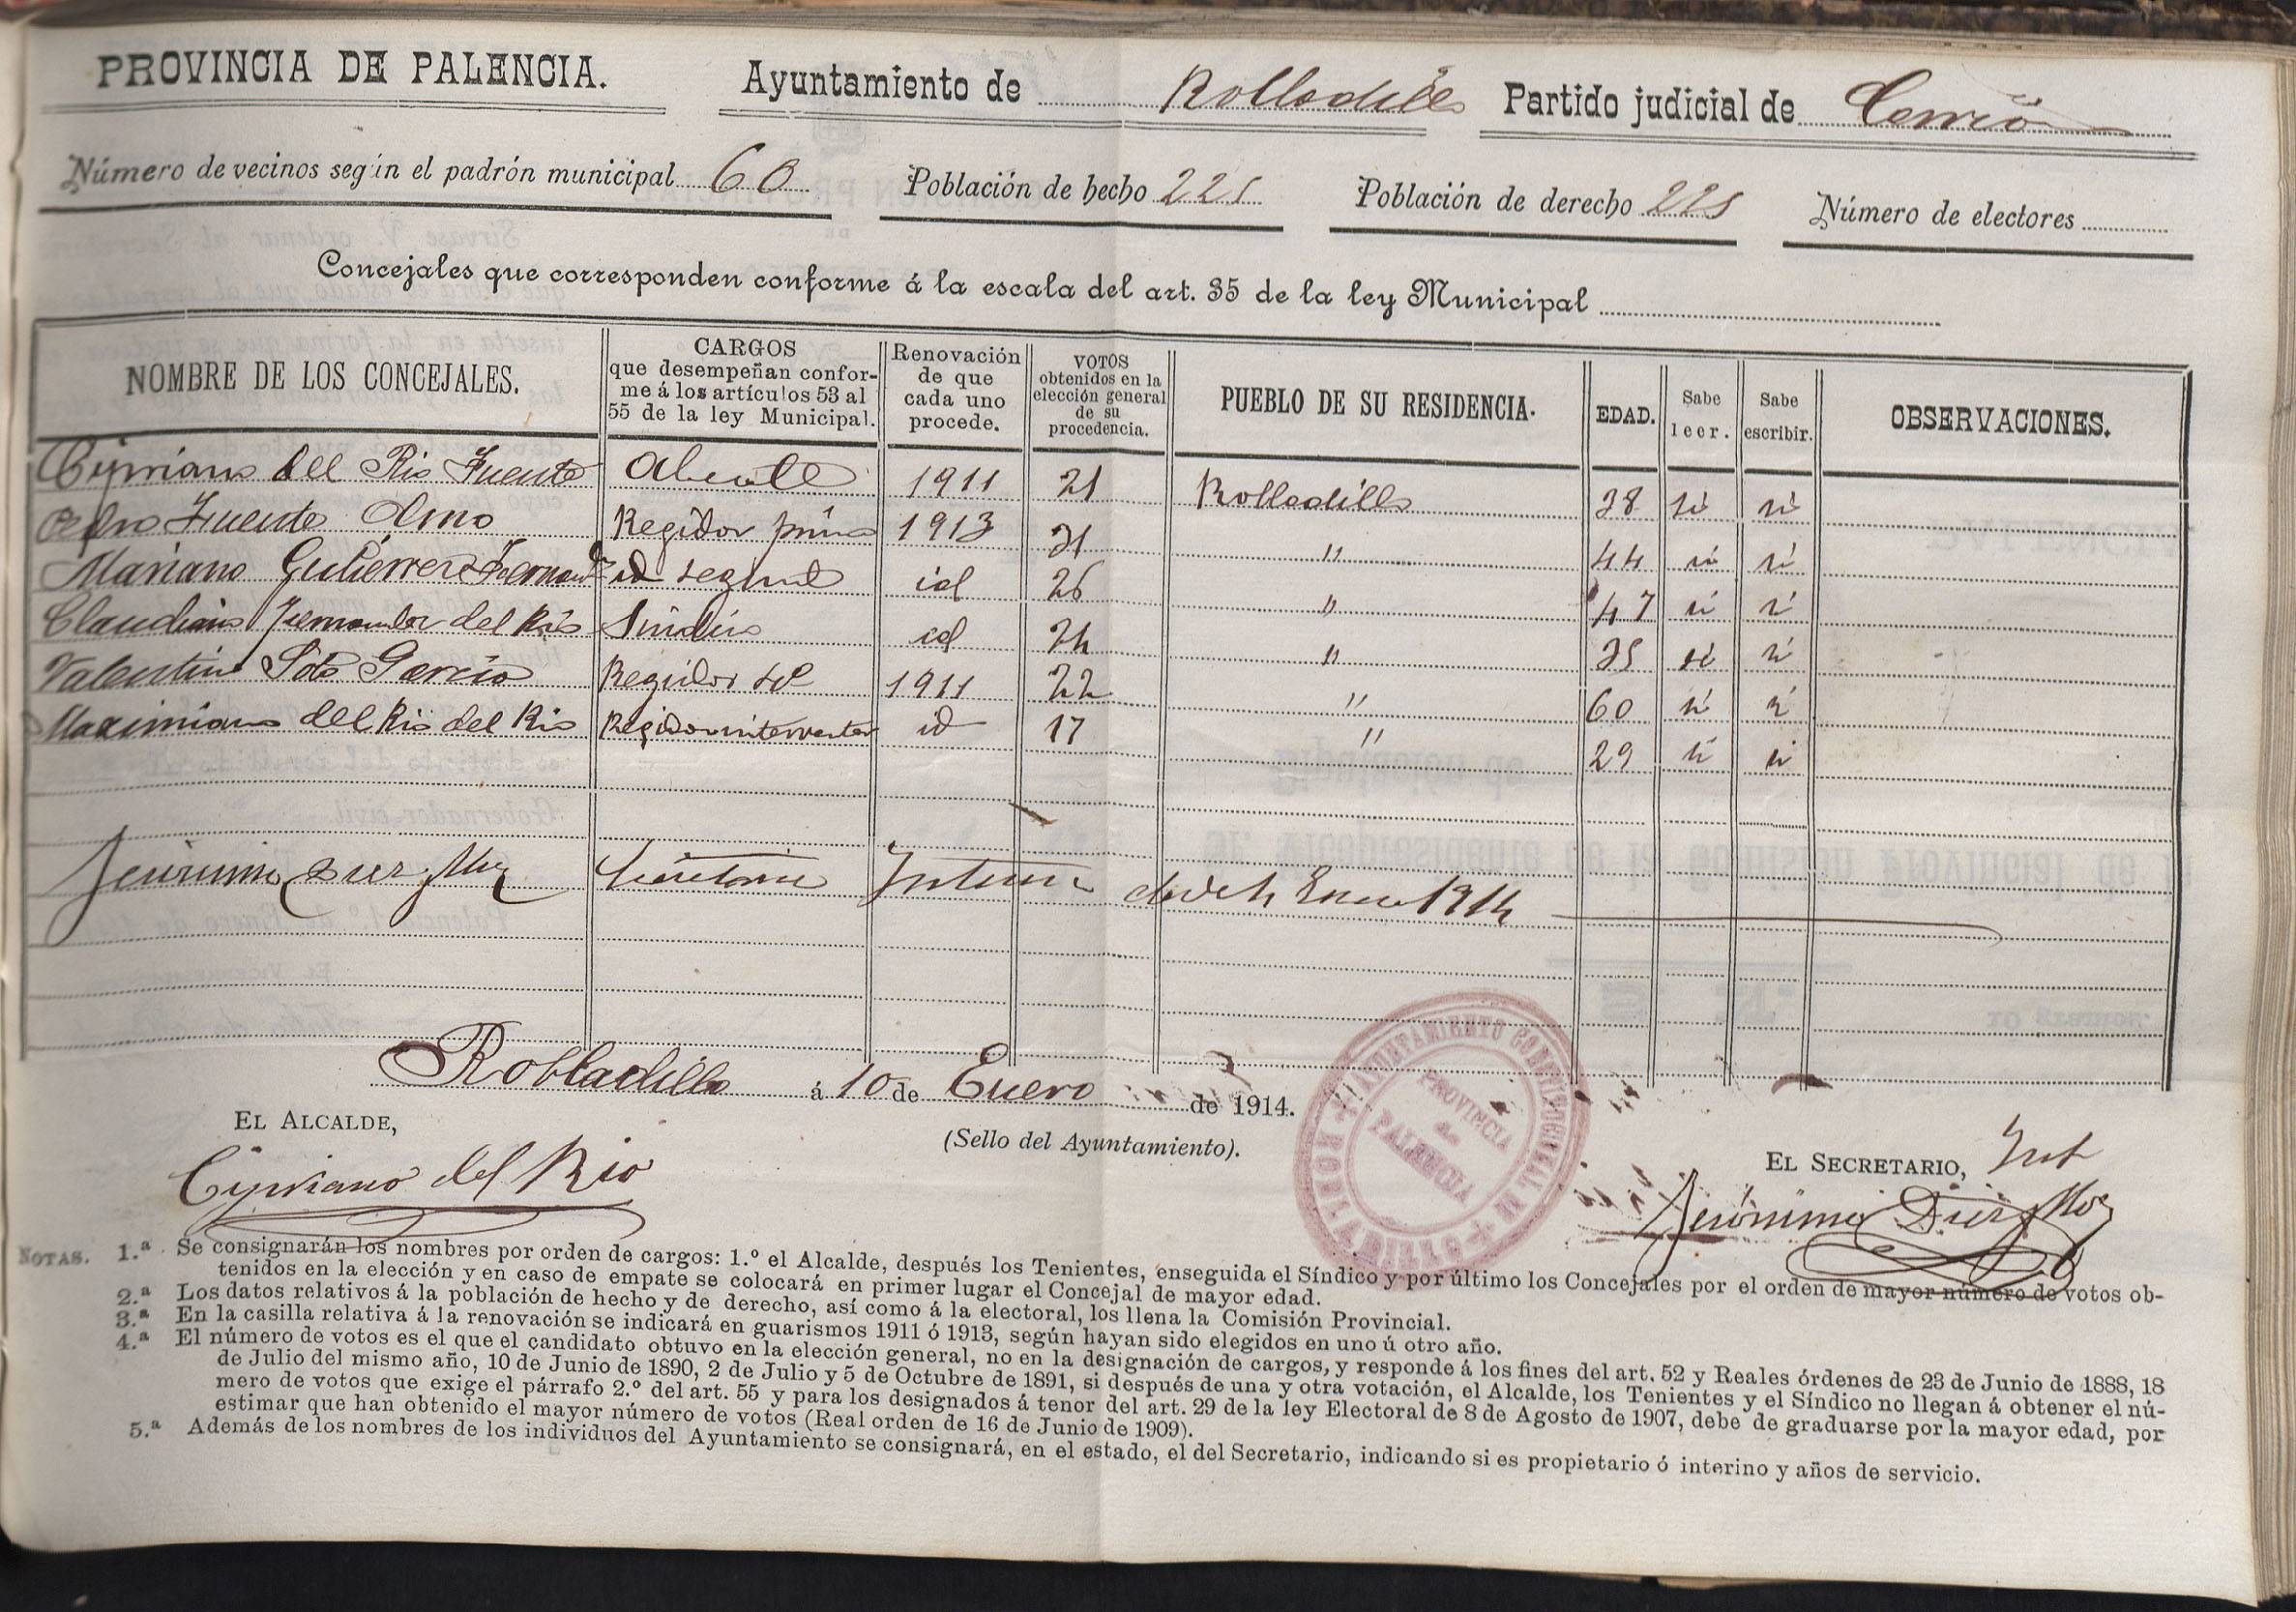 PROVINCIA DE PALENCIA. Ayuntamiento de Robladillo Partido judicial de Carrió
Número de vecinos según el padrón municipal 60 Población de hecho 225 Población de derecho 225 Número de electores
Concejales que corresponden conforme á la escala del art. 35 de la ley Municipal
NOMBRE DE LOS CONCEJALES. CARGOS que desempeñan conforme á los artículos 53 al 55 de la ley Municipal. Renovación de que cada uno procede. VOTOS obtenidos en la elección general de su procedencia. PUEBLO DE SU RESIDENCIA. EDAD. Sabe leer. Sabe escribir. OBSERVACIONES.
Cipriano del Rio Fuente Alcalde 1911 21 Robladillo 38 si si
Pedro Fuente Olmo Regidor prime 1913 31 " 44 si si
Mariano Gutiérrez Fernand id segund id 26 " 47 si si
Claudiano Fernandez del Rio Sindico id 24 " 35 si si
Valentin Soto Garcia Regidor 1911 22 " 60 si si
Maximiano del Rio del Rio Regidor interventor id 17 " 29 si si
Jerónimo Diez Secretario Interino desde Enero 1914
Robladillo á 10 de Enero de 1914.
(Sello del Ayuntamiento).
AYUNTAMIENTO CONSTITUCIONAL DE ROBLADILLO
PROVINCIA de PALENCIA
EL ALCALDE,
Cipriano del Rio
EL SECRETARIO, Int
Jerónimo Diez
NOTAS. 1.ª Se consignarán los nombres por orden de cargos: 1.º el Alcalde, después los Tenientes, enseguida el Síndico y por último los Concejales por el orden de mayor número de votos ob-
tenidos en la elección y en caso de empate se colocará en primer lugar el Concejal de mayor edad.
2.ª Los datos relativos á la población de hecho y de derecho, así como á la electoral, los llena la Comisión Provincial.
3.ª En la casilla relativa á la renovación se indicará en guarismos 1911 ó 1913, según hayan sido elegidos en uno ú otro año.
4.ª El número de votos es el que el candidato obtuvo en la elección general, no en la designación de cargos, y responde á los fines del art. 52 y Reales órdenes de 23 de Junio de 1888, 18
de Julio del mismo año, 10 de Junio de 1890, 2 de Julio y 5 de Octubre de 1891, si después de una y otra votación, el Alcalde, los Tenientes y el Síndico no llegan á obtener el nú-
mero de votos que exige el párrafo 2.º del art. 55 y para los designados á tenor del art. 29 de la ley Electoral de 8 de Agosto de 1907, debe de graduarse por la mayor edad, por
estimar que han obtenido el mayor número de votos (Real orden de 16 de Junio de 1909).
5.ª Además de los nombres de los individuos del Ayuntamiento se consignará, en el estado, el del Secretario, indicando si es propietario ó interino y años de servicio.